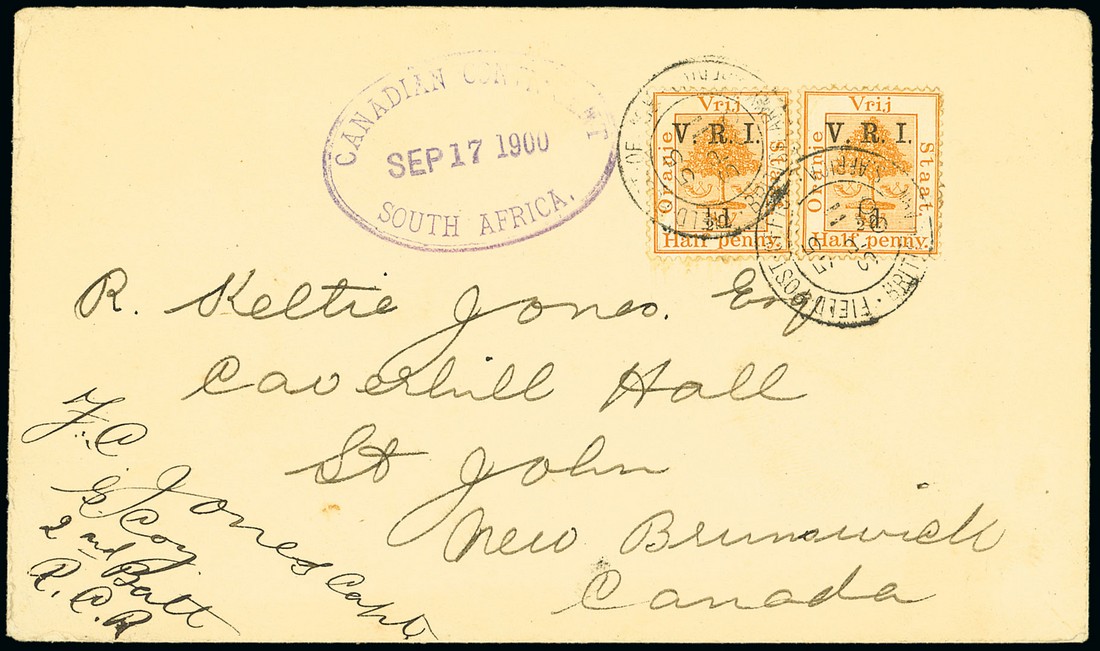 CANADIAN CONTINGENT
SEP 17 1900
SOUTH AFRICA.
Vrij
Oranje
Staat.
V. R. I.
½d
Half penny.
Vrij
Oranje
Staat.
V. R. I.
½d
Half penny.
FIELD
BRITISH
FIELD POST OFFICE
BRITISH
S. AFRICA
R. Keltie Jones. Esq
Caverhill Hall
St John
New Brunswick
Canada
F. C. Jones Capt.
G. Coy
2nd Batt
R. C. R